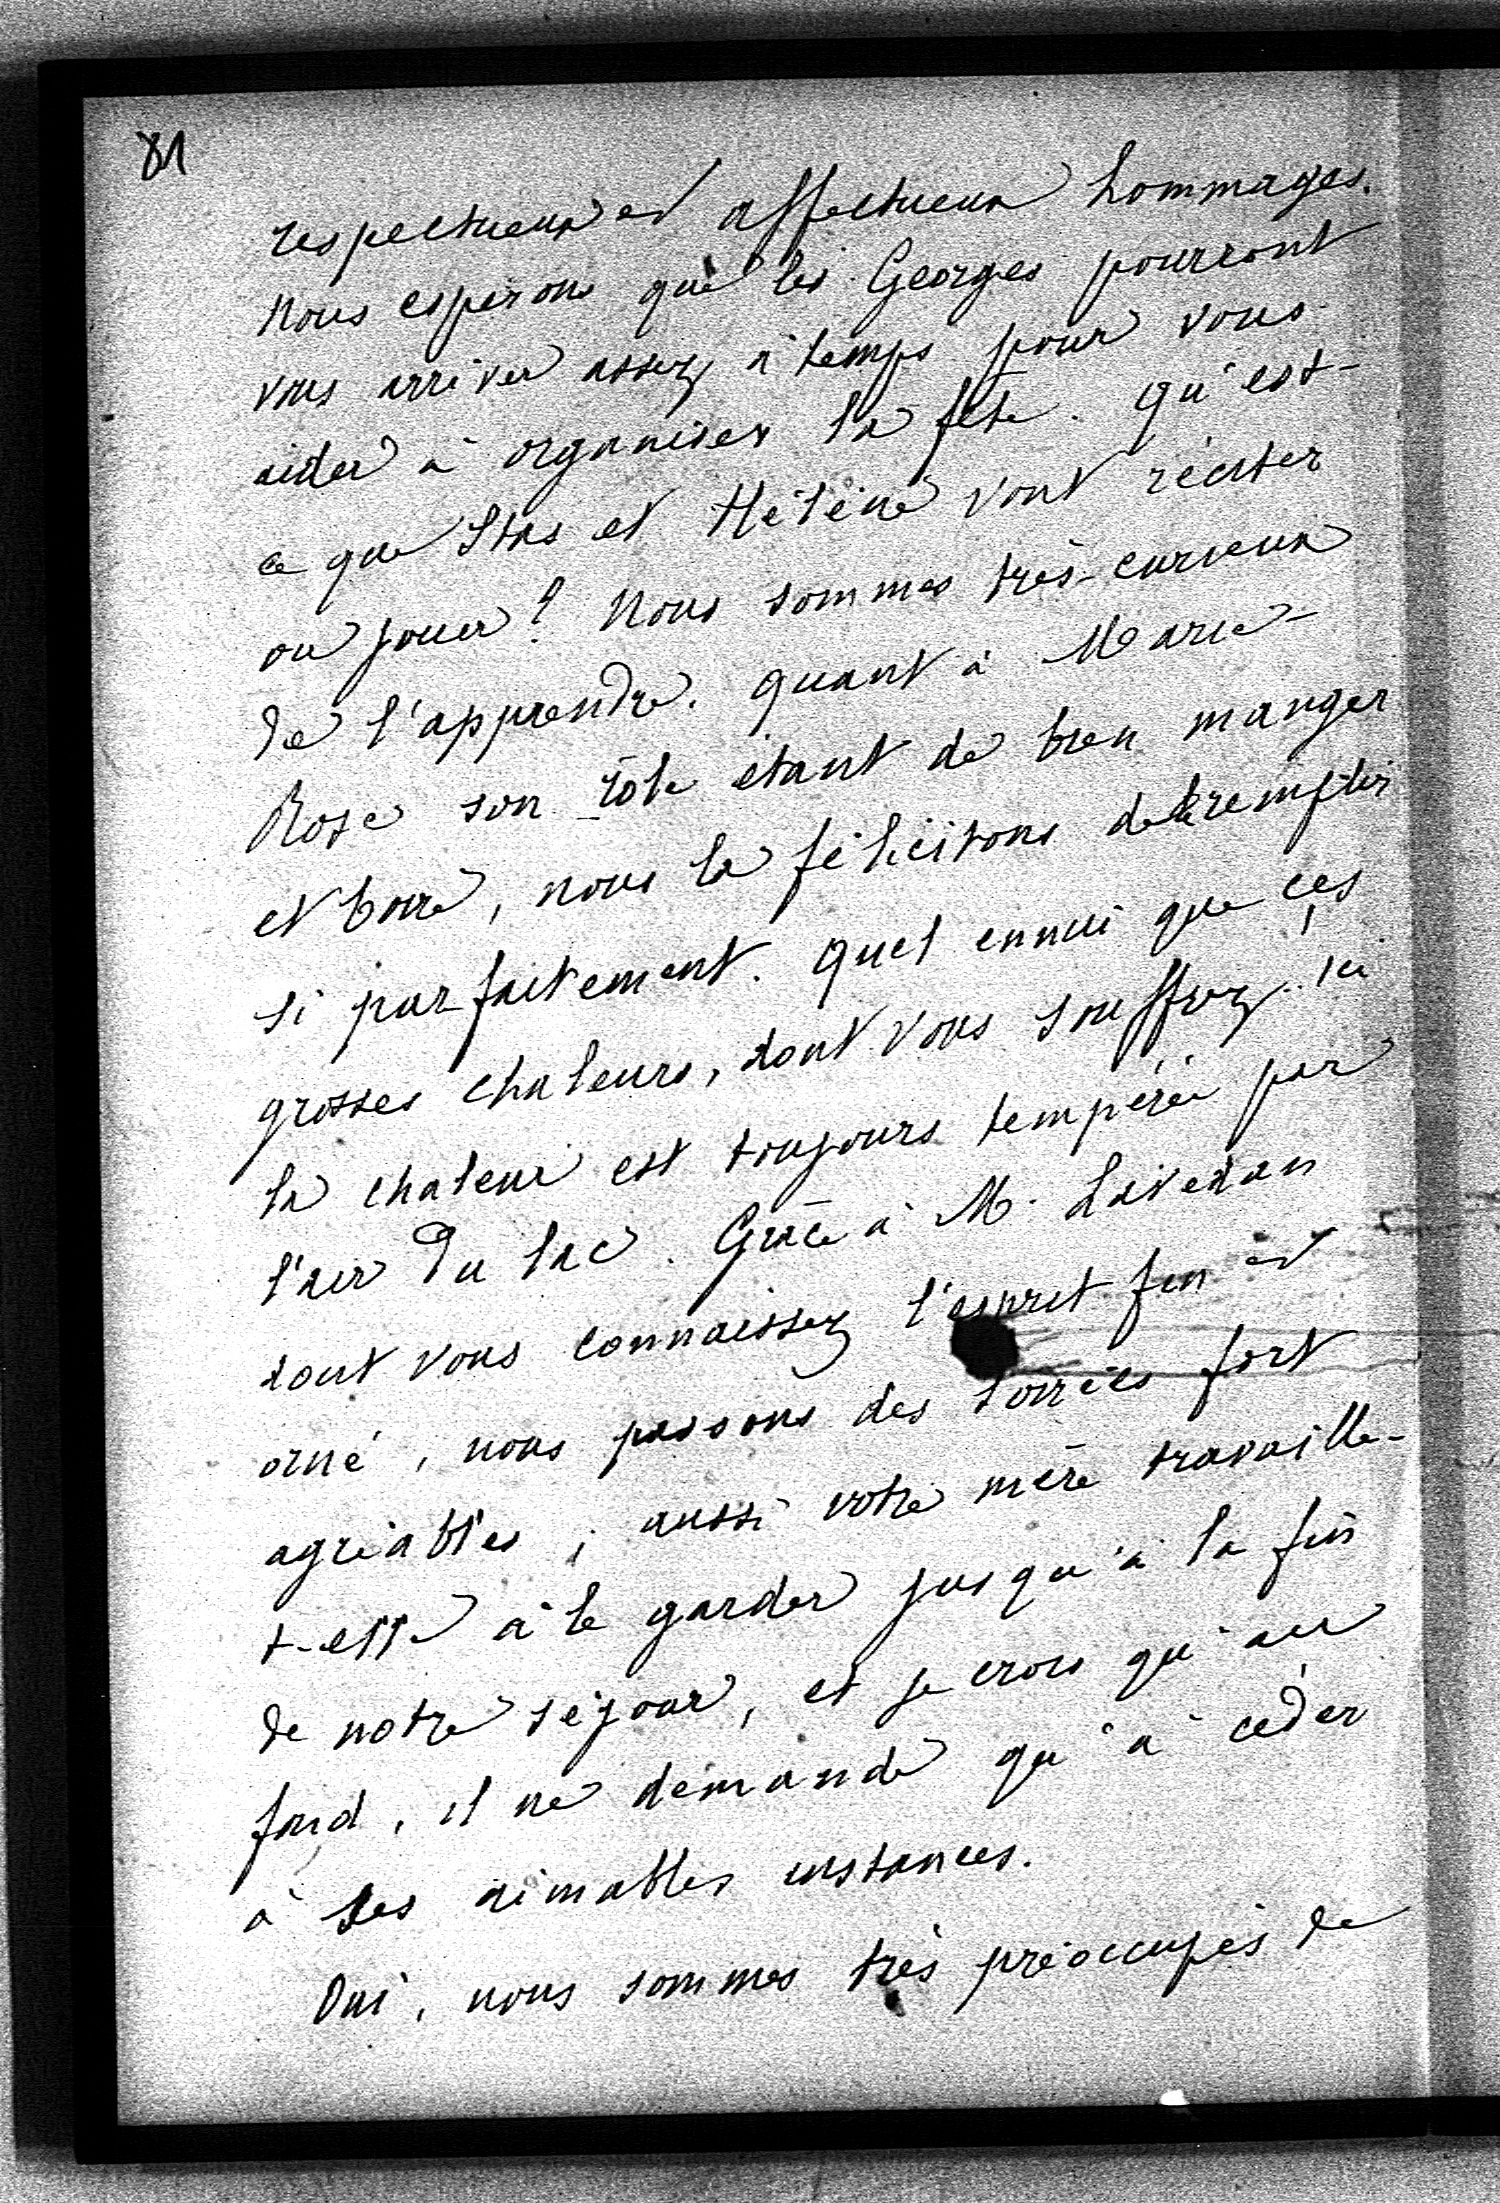 81
respectueux et affectueux hommages.
Nous esperons que les Georges pourront
vous arriver assez à temps pour vous
aider à organiser la fête. Qu'est-
ce que Stas et Hélène vont réciter
ou jouer? Nous sommes très-curieux
de l'apprendre. Quant à Marie-
Rose son rôle étant de bien manger
et boire, nous la félicitons de le remplir
si parfaitement. Quel ennui que ces
grosses chaleurs, dont vous souffrez. Ici
la chaleur est toujours tempérée par
l'air du lac. Grâce à M. Lavedan
dont vous connaissez l'esprit fin et
orné, nous passons des soirées fort
agréables; aussi votre mère travaille-
t-elle à le garder jusqu'à la fin
de notre séjour, et je crois qu'au
fond, il ne demande qu'à céder
à ses aimables instances.
Oui, nous sommes très préoccupés de